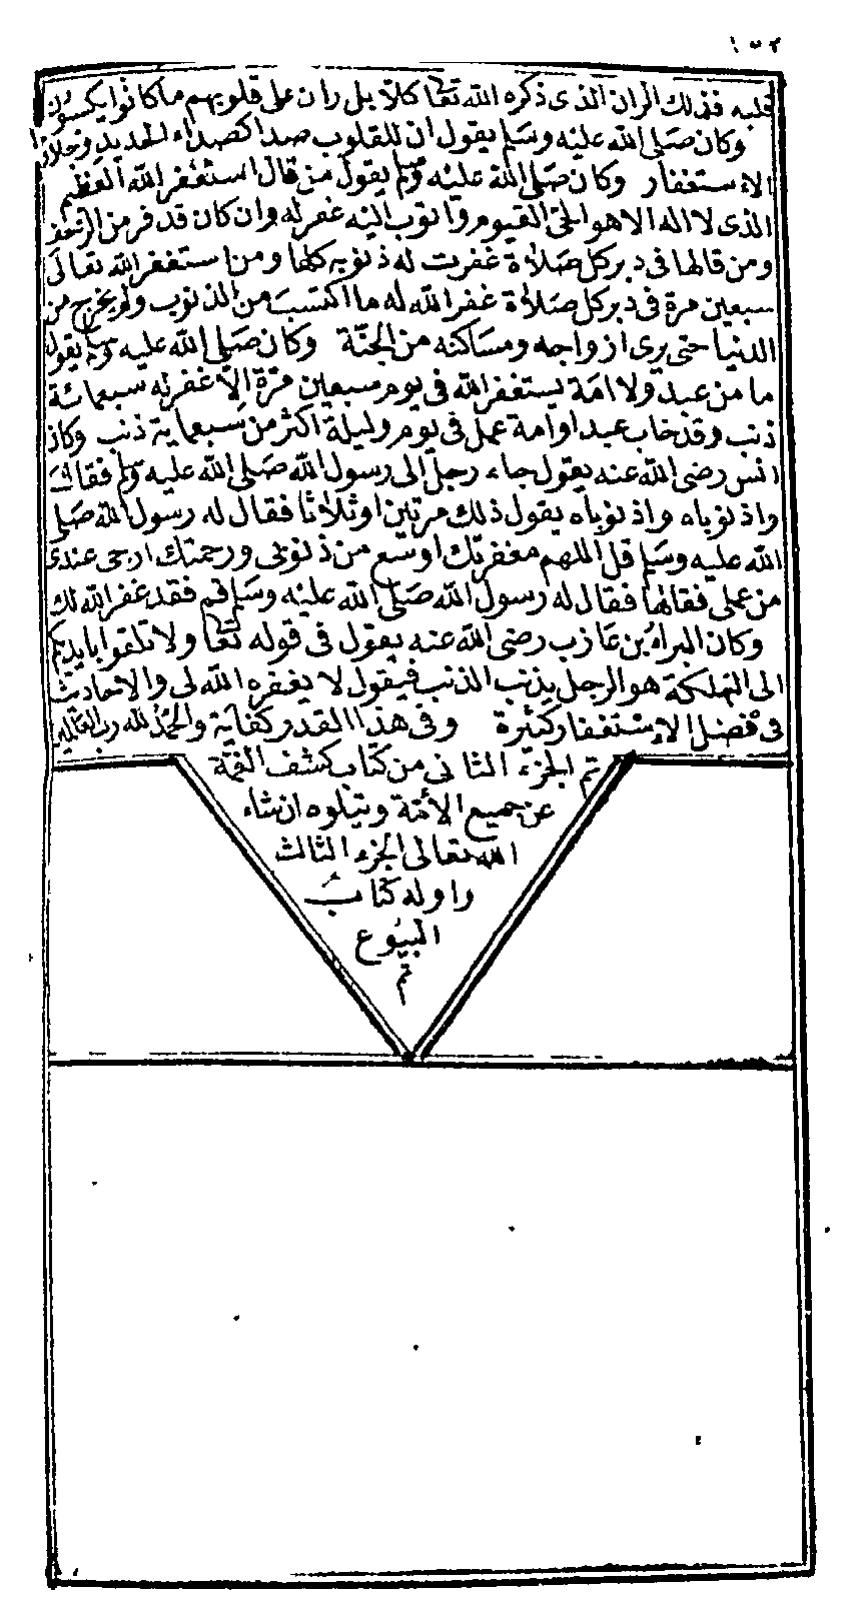 ١٥٢
قلبه فذلك الران الذى ذكره الله تعا كلا بل ران على قلوبهم ماكانوا يكسبون
وكان صلى الله عليه وسلم يقول ان للقلوب صدا كصداء الحديد وجلاؤها
الاستغفار وكان صلى الله عليه وسلم يقول من قال استغفر الله العظيم
الذى لا اله الا هو الحى القيوم واتوب اليه غفر له وان كان قد فر من الزحف
ومن قالها فى دبر كل صلاة غفرت له ذنوبه كلها ومن استغفر الله تعالى
سبعين مرة فى دبر كل صلاة غفر الله له ما اكتسب من الذنوب ولم يخرج من
الدنيا حتى يرى ازواجه ومساكنه من الجنة وكان صلى الله عليه وسلم يقول
ما من عبد ولا امة يستغفر الله فى يوم سبعين مرة الا غفر له سبعمائة
ذنب وقد خاب عبد او امة عمل فى يوم وليلة اكثر من سبعماية ذنب وكان
انس رضى الله عنه يقول جاء رجل الى رسول الله صلى الله عليه وسلم فقال
واذنوباه واذنوباه يقول ذلك مرتين او ثلاثا فقال له رسول الله صلى
الله عليه وسلم قل اللهم مغفرتك اوسع من ذنوبى ورحمتك ارجى عندى
من عملى فقالها فقال له رسول الله صلى الله عليه وسلم قم فقد غفر الله لك
وكان البراء بن عازب رضى الله عنه يقول فى قوله تعا ولا تلقوا بايديكم
الى التهلكة هو الرجل يذنب الذنب فيقول لا يغفره الله لى والاحاديث
فى فضل الاستغفار كثيرة وفى هذا القدر كفاية والحمد لله رب العالمين
تم الجزء الثانى من كتاب كشف الغمة
عن جميع الأمة ويتلوه ان شاء
الله تعالى الجزء الثالث
واوله كتاب
البيوع
تم